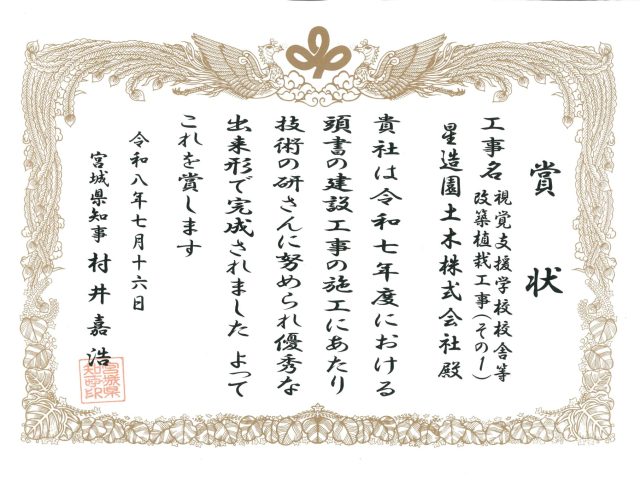 賞状
工事名 視覚支援学校校舎等
改築植栽工事(その1)
星造園土木株式会社殿
貴社は令和七年度における
頭書の建設工事の施工にあたり
技術の研さんに努められ優秀な
出来形で完成されました よって
これを賞します
令和八年七月十六日
宮城県知事 村井嘉浩
宮城県
知事印